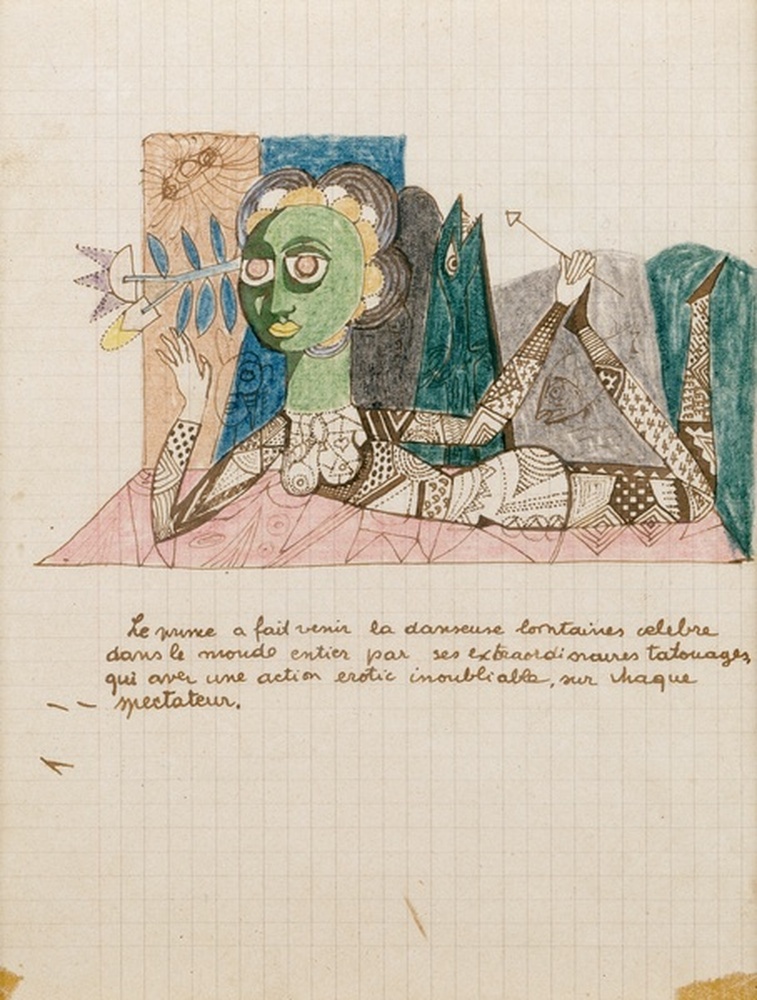 Le prince a fait venir la danseuse lointaines celebre
dans le monde entier par ses extraordisnaires tatouages,
qui aver une action erotic inoubliable, sur chaque
spectateur.